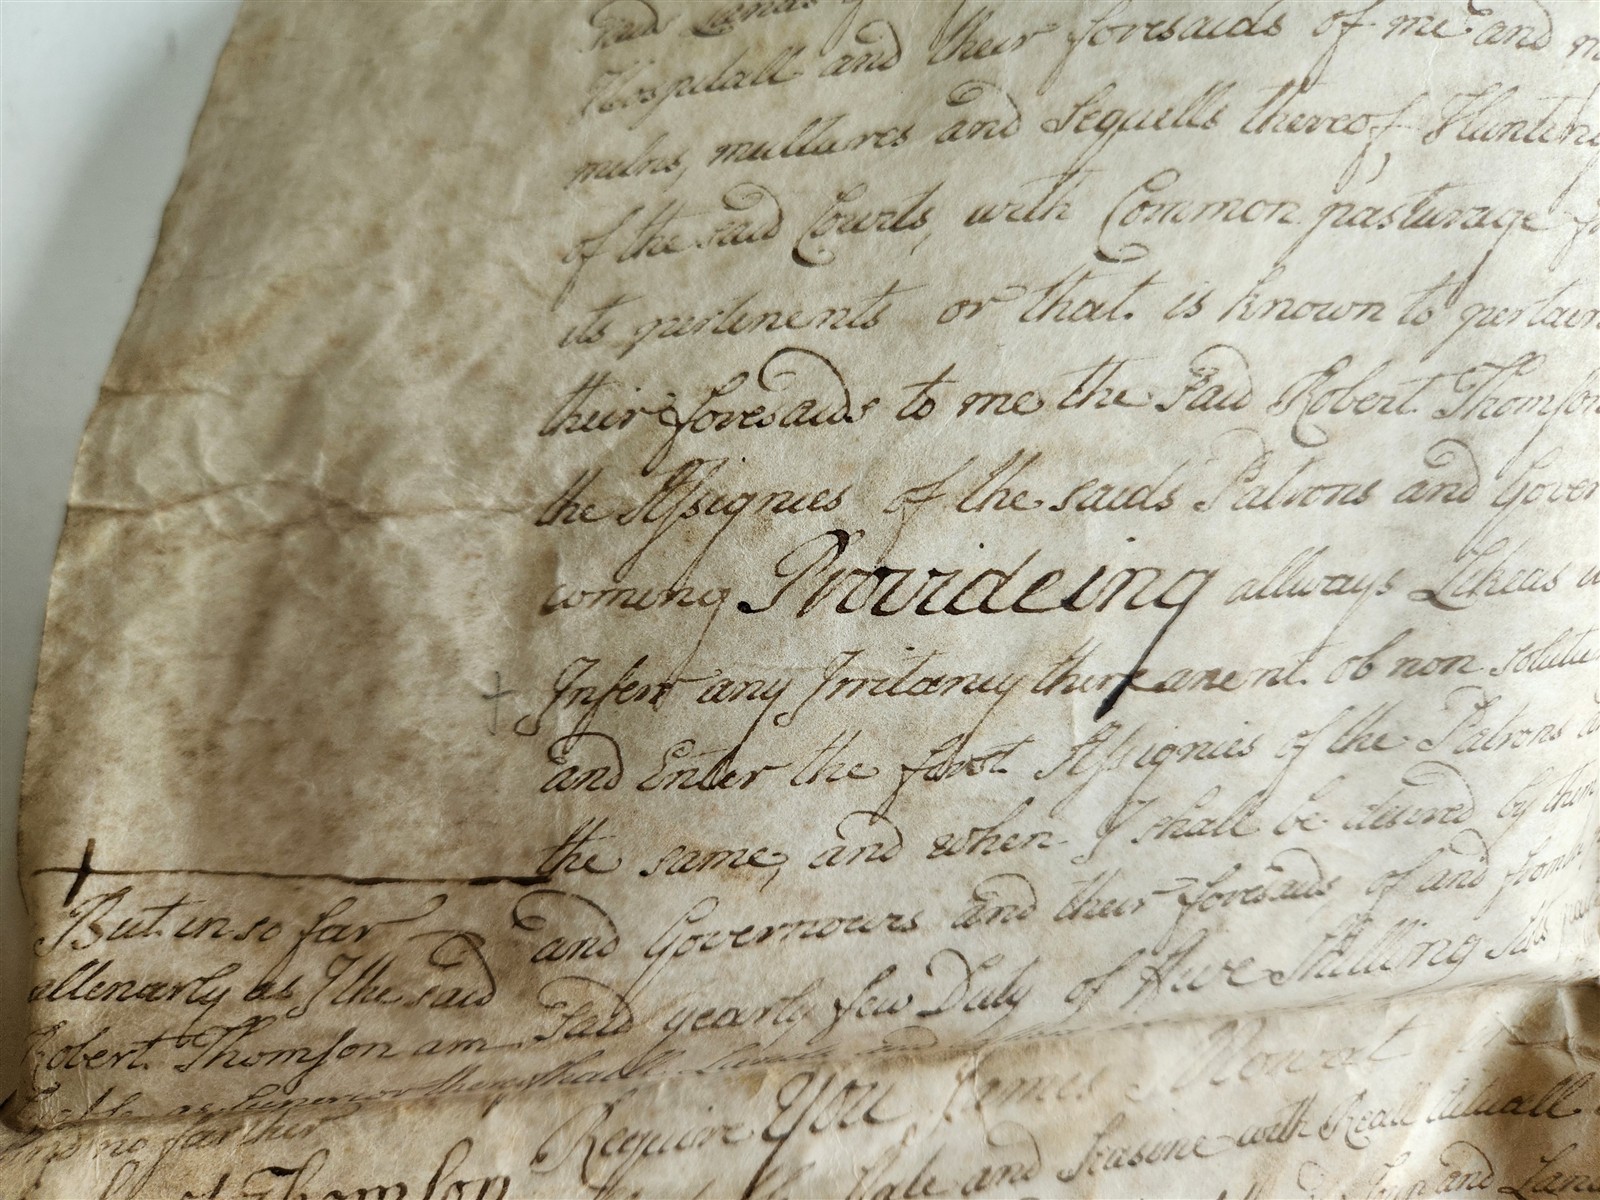 said Lands
Hospitall and their foresaids of me and
milns, multures and Sequells thereof, Hunting
of the said Courts, with Common pasturage
its pertinents or that is known to pertain
their foresaids to me the said Robert Thomson
the Assignies of the saids Patrons and Gover
coming Provideing allways Likeas
Infer any Irritancy thereanent ob non solutu
and Enter the first Assignies of the Patrons
the same, and when I shall be desired by them
and Governours and their foresaids of and from
said yearly few Duty of Five Shilling Scots
Require You James Mowat
and Seasine with Reall actuall
and Land
But in so far
allenarly as I the said
Robert Thomson am
as Superior thereof shall
and no farther
Thomson